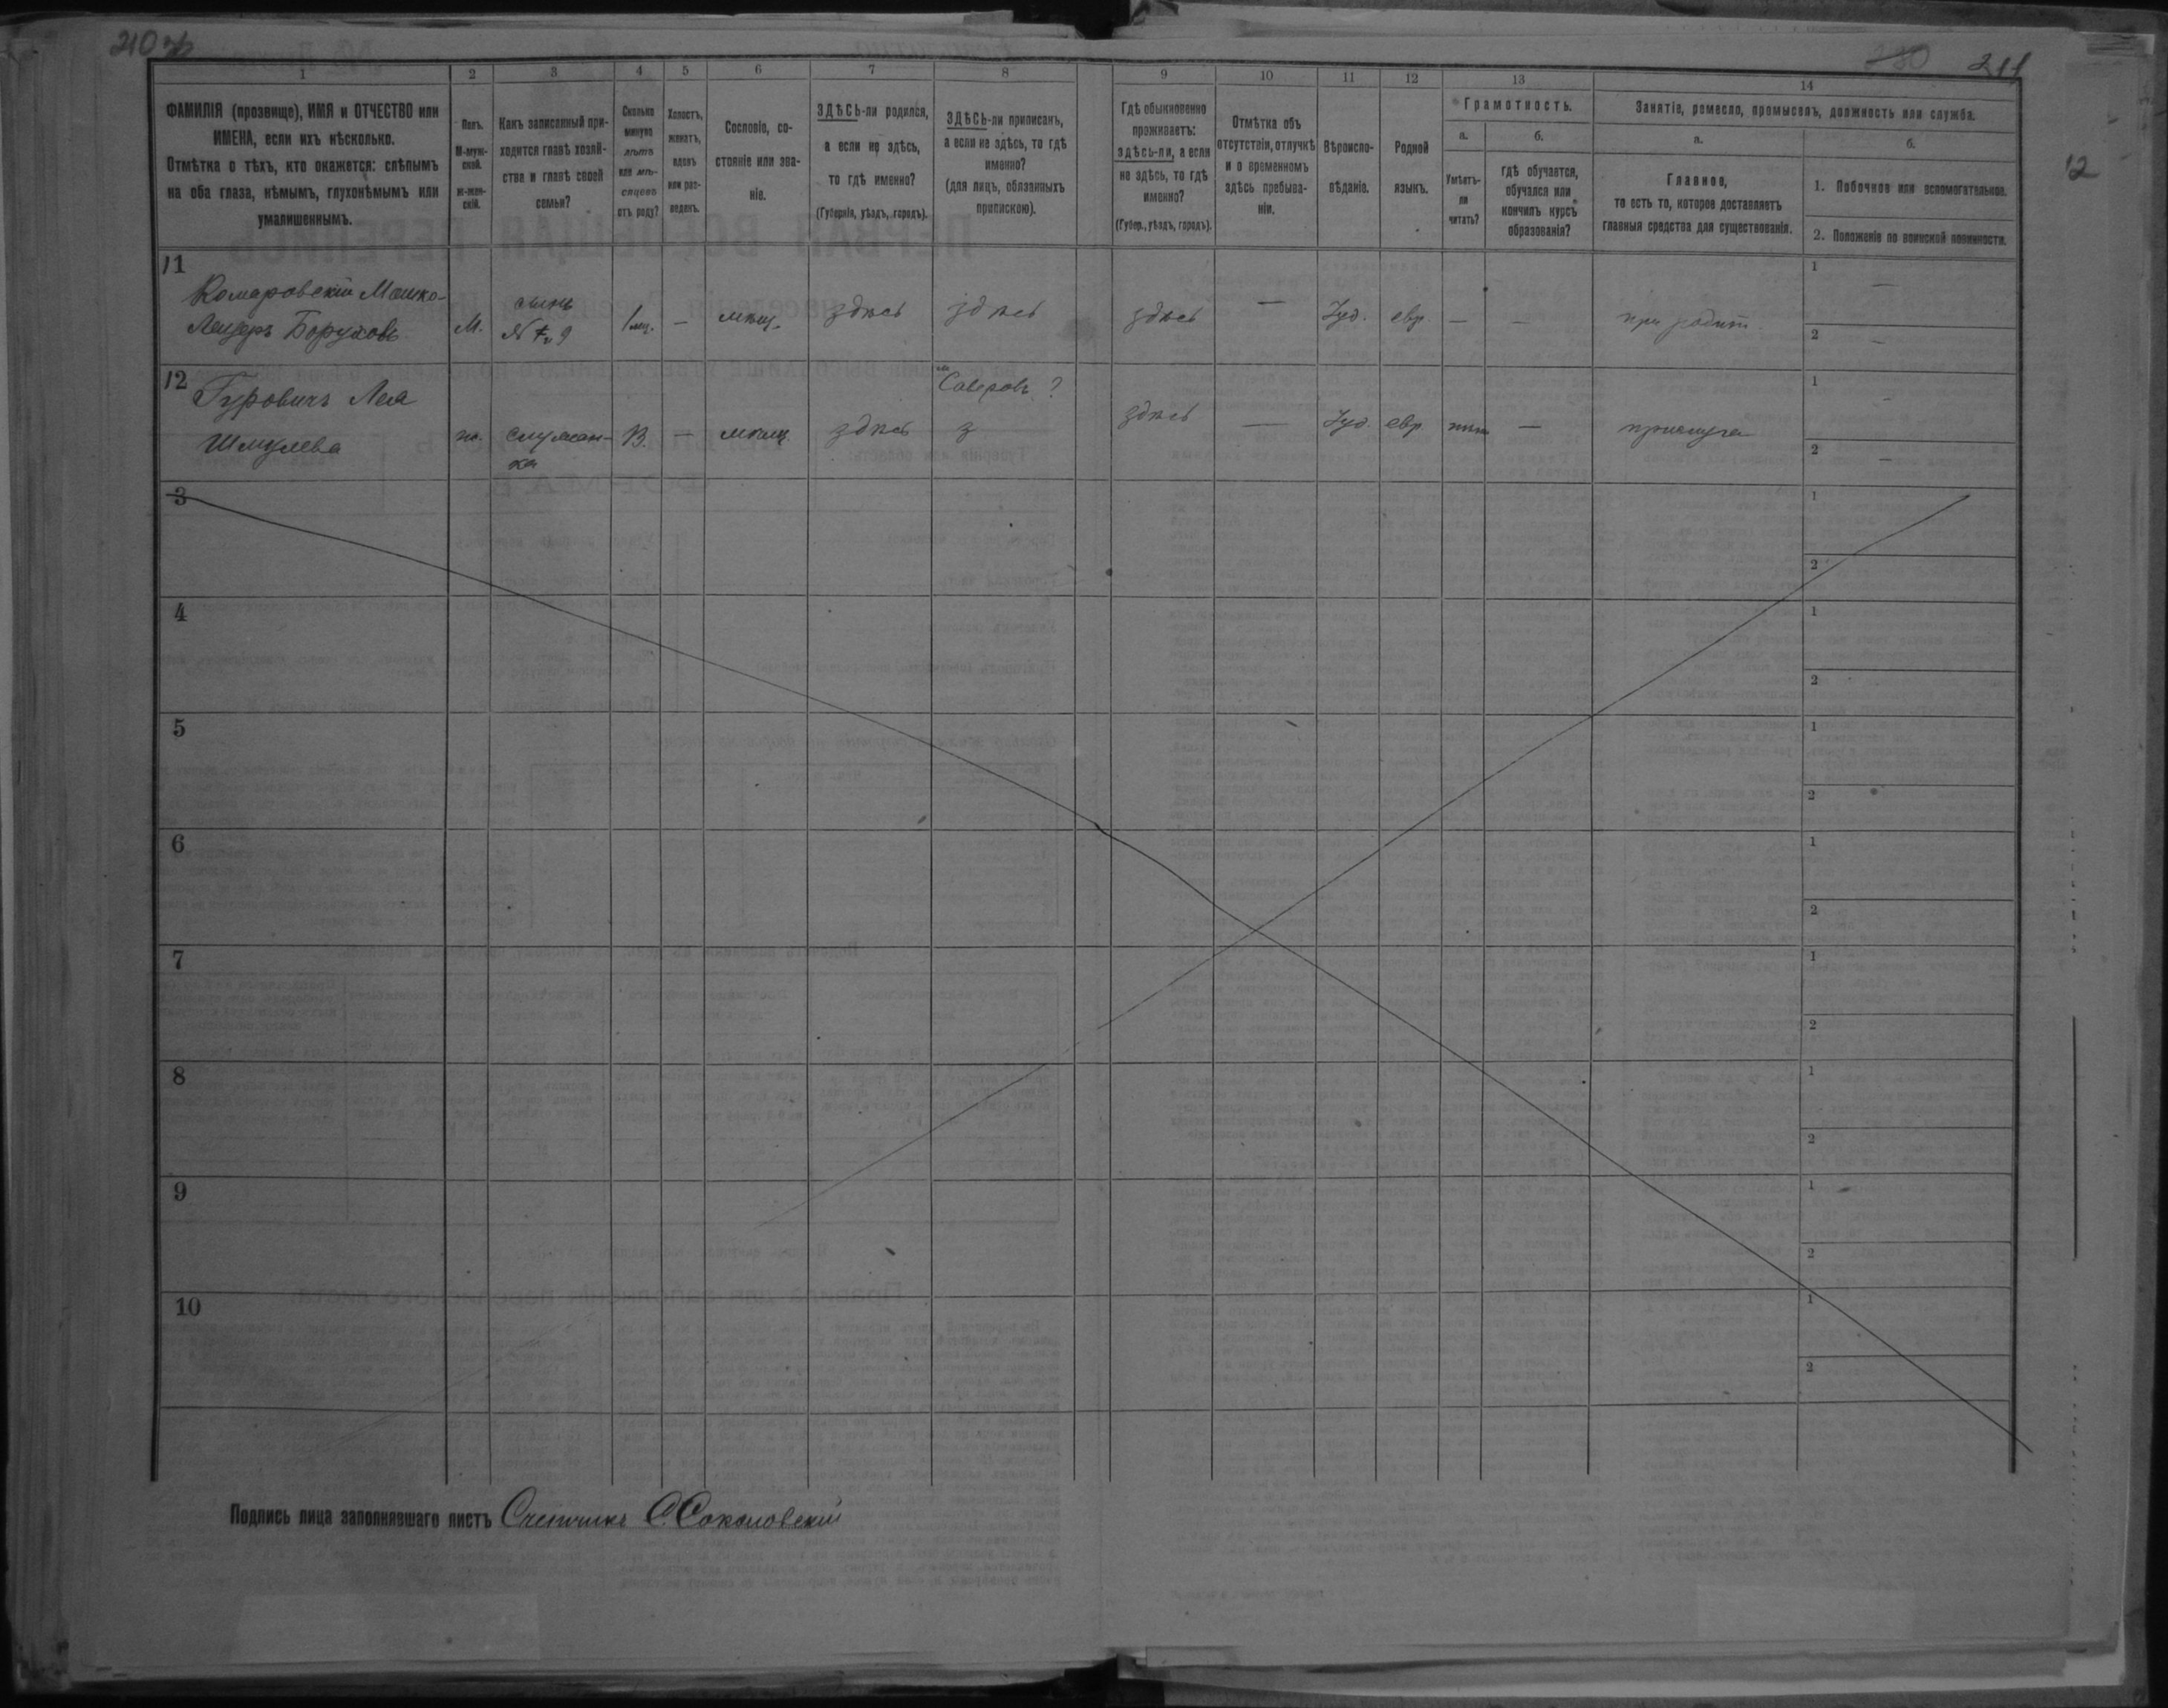 210 об
280 211
12
1 2 3 4 5 6 7 8 9 10 11 12 13 14
ФАМИЛІЯ (прозвище), ИМЯ и ОТЧЕСТВО или
ИМЕНА, если ихъ нѣсколько.
Отмѣтка о тѣхъ, кто окажется: слѣпымъ
на оба глаза, нѣмымъ, глухонѣмымъ или
умалишеннымъ.
Полъ.
М-муж-
ской.
ж-жен-
скій.
Какъ записанный при-
ходится главѣ хозяй-
ства и главѣ своей
семьи?
Сколько
минуло
лѣтъ
или мѣ-
сяцевъ
отъ роду?
Холостъ,
женатъ,
вдовъ
или раз-
веденъ.
Сословіе, со-
стояніе или зва-
ніе.
ЗДѢСЬ-ли родился,
а если не здѣсь,
то гдѣ именно?
(Губернія, уѣздъ, городъ).
ЗДѢСЬ-ли приписанъ,
а если не здѣсь, то гдѣ
именно?
(для лицъ, обязанныхъ
припискою).
Гдѣ обыкновенно
проживаетъ:
здѣсь-ли, а если
не здѣсь, то гдѣ
именно?
(Губер., уѣздъ, городъ).
Отмѣтка объ
отсутствіи, отлучкѣ
и о временномъ
здѣсь пребыва-
ніи.
Вѣроиспо-
вѣданіе.
Родной
языкъ.
Грамотность.
а.
Умѣетъ-
ли
читать?
б.
гдѣ обучается,
обучался или
кончилъ курсъ
образованія?
Занятіе, ремесло, промыселъ, должность или служба.
а.
Главное,
то есть то, которое доставляетъ
главныя средства для существованія.
б.
1. Побочное или вспомогательное.
2. Положеніе по воинской повинности.
11
Комаровскій Мошко-
Лейзеръ Боруховъ
М.
сынъ
№ 9
1 мц.
—
мѣщ.
здѣсь
здѣсь
здѣсь
—
Іуд.
евр.
—
—
при родит.
1
—
2
—
12
Гуровичъ Лея
Шмулева
ж.
служан-
ка
13.
—
мѣщ.
здѣсь
?
здѣсь
—
Іуд.
евр.
нѣтъ
—
прислуга
1
-
2
—
3
1
2
4
1
2
5
1
2
6
1
2
7
1
2
8
1
2
9
1
2
10
1
2
Подпись лица заполнявшаго листъ Счетчикъ С. Соколовскій